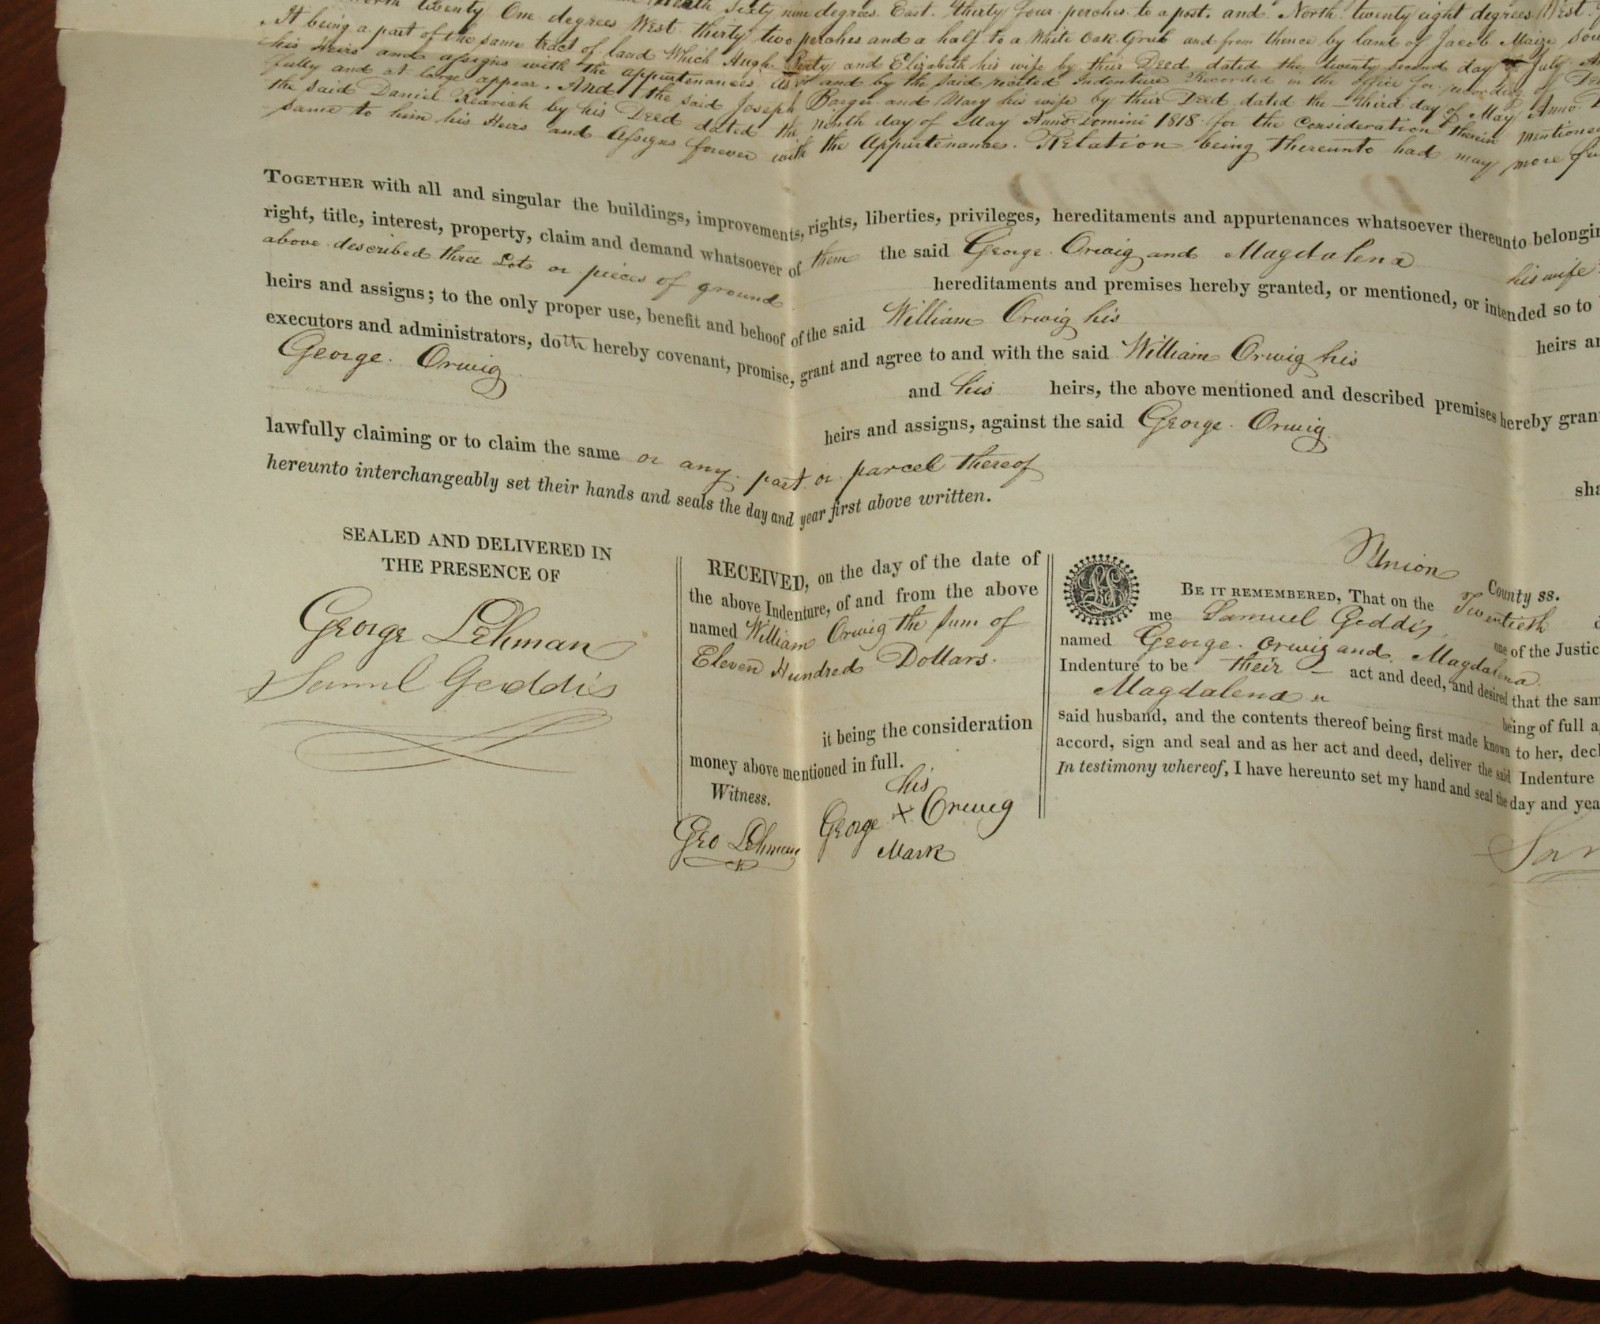 twenty One degrees West thirty two perches and a half to a White Oak Grub and from thence by land of Jacob Maize
North Sixty nine degrees East thirty four perches to a post. and North twenty eight degrees West
It being a part of the same tract of land Which Hugh and Elizabeth his wife by their Deed dated the twenty second day of July
his Heirs and assigns with the appurtenances as and by the said recited Indenture Recorded in the office for recording of
fully and at large appear. And the said Joseph Barger and Mary his wife by their Deed dated the third day of May Anno
the said Daniel by his Deed dated the Ninth day of May Anno Domini 1818 for the Consideration therein mentioned
same to him his Heirs and Assigns forever with the Appurtenances. Relation being thereunto had may more
TOGETHER with all and singular the buildings, improvements, rights, liberties, privileges, hereditaments and appurtenances whatsoever thereunto
right, title, interest, property, claim and demand whatsoever of them the said George Orwig and Magdalena his wife
above described three Lots or pieces of ground hereditaments and premises hereby granted, or mentioned, or intended so to
heirs and assigns; to the only proper use, benefit and behoof of the said William Orwig his heirs
executors and administrators, doth hereby covenant, promise, grant and agree to and with the said William Orwig his
George Orwig and his heirs, the above mentioned and described premises hereby
heirs and assigns, against the said George Orwig
lawfully claiming or to claim the same or any part or parcel thereof
hereunto interchangeably set their hands and seals the day and year first above written.
SEALED AND DELIVERED IN
THE PRESENCE OF
George Lehman
Saml Geddis
RECEIVED, on the day of the date of
the above Indenture, of and from the above
named William Orwig the Sum of
Eleven Hundred Dollars.
it being the consideration
money above mentioned in full.
Witness.
Geo Lehman
his
George X Orwig
Mark
Union County ss.
BE IT REMEMBERED, That on the Twentieth
me Samuel Geddis, one of the
named George Orwig and Magdalena
Indenture to be their act and deed, and desired that the
Magdalena being of full
said husband, and the contents thereof being first made known to her,
accord, sign and seal and as her act and deed, deliver the said Indenture
In testimony whereof, I have hereunto set my hand and seal the day and